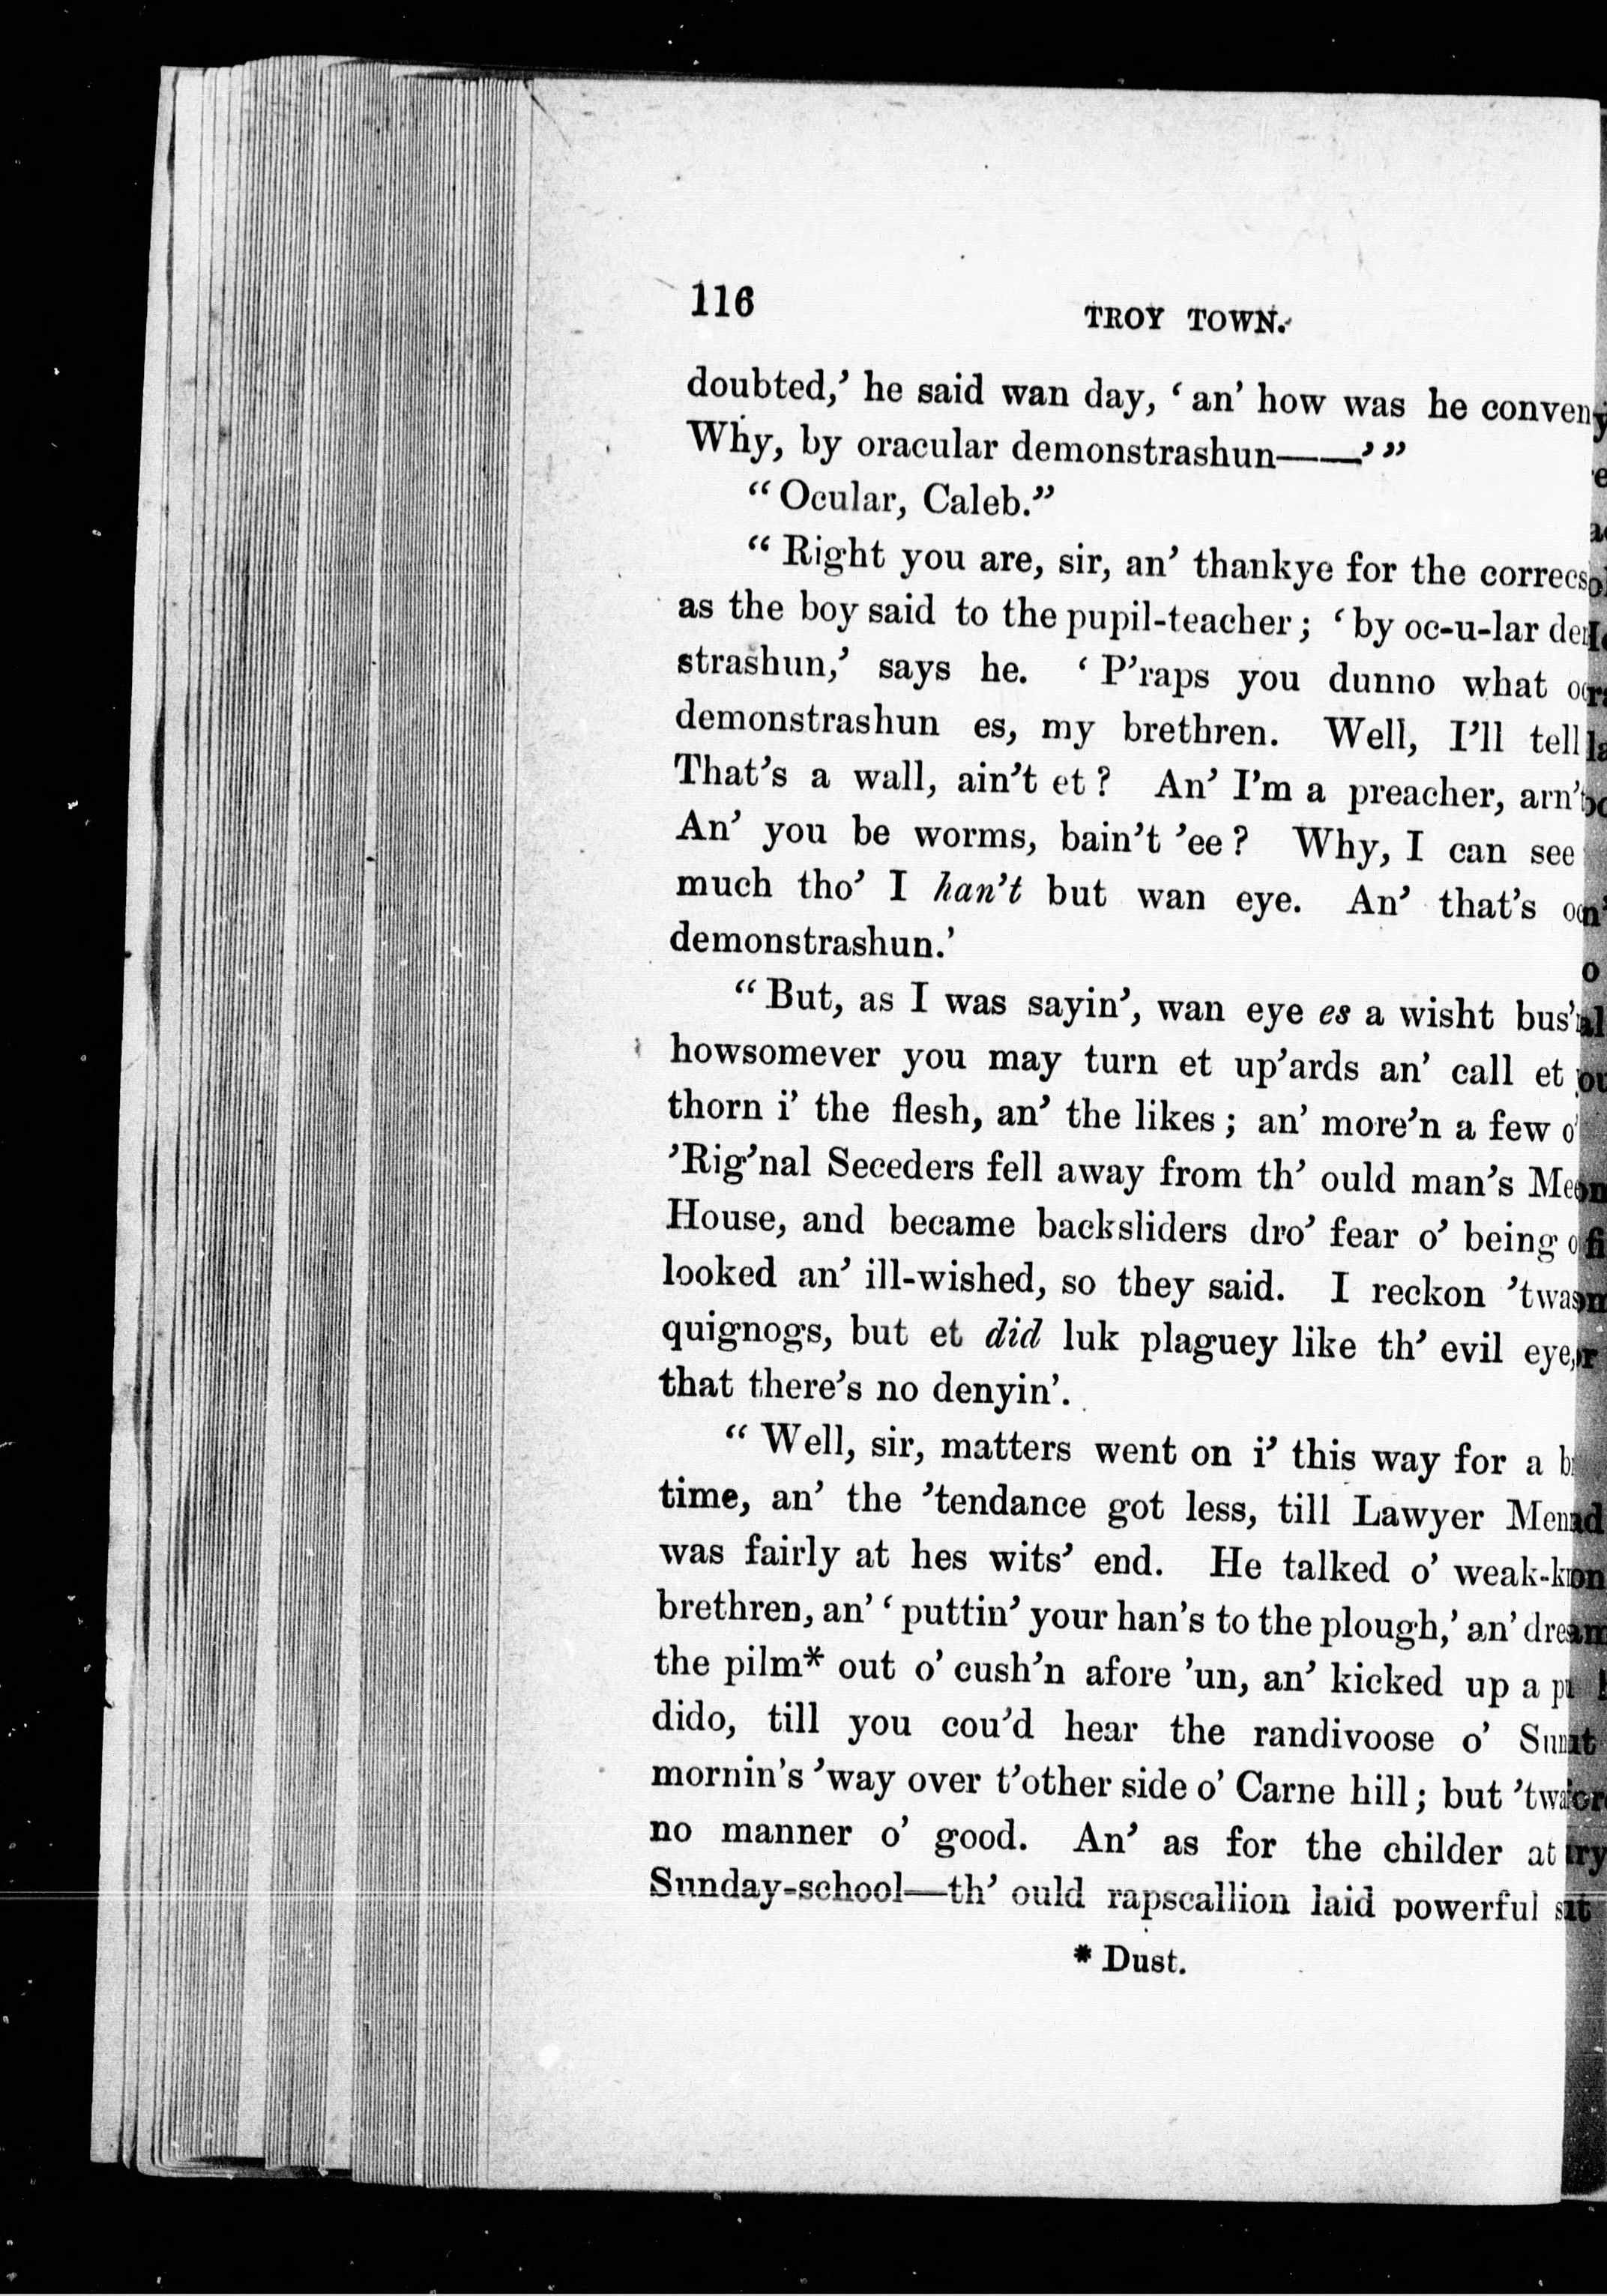 116
TROY TOWN.
doubted,' he said wan day, 'an' how was he
Why, by oracular demonstrashun——'"
"Ocular, Caleb."
"Right you are, sir, an' thankye for the
as the boy said to the pupil-teacher; 'by oc-u-lar
strashun,' says he. 'P'raps you dunno what
demonstrashun es, my brethren. Well, I'll tell
That's a wall, ain't et? An' I'm a preacher,
An' you be worms, bain't 'ee? Why, I can see
much tho' I han't but wan eye. An' that's
demonstrashun.'
"But, as I was sayin', wan eye es a wisht
howsomever you may turn et up'ards an' call et
thorn i' the flesh, an' the likes; an' more'n a few o'
'Rig'nal Seceders fell away from th' ould man's
House, and became backsliders dro' fear o' being
looked an' ill-wished, so they said. I reckon
quignogs, but et did luk plaguey like th' evil eye,
that there's no denyin'.
"Well, sir, matters went on i' this way for a
time, an' the 'tendance got less, till Lawyer
was fairly at hes wits' end. He talked o'
brethren, an' 'puttin' your han's to the plough,' an'
the pilm* out o' cush'n afore 'un, an' kicked up a
dido, till you cou'd hear the randivoose o'
mornin's 'way over t'other side o' Carne hill; but
no manner o' good. An' as for the childer at
Sunday-school—th' ould rapscallion laid powerful
* Dust.